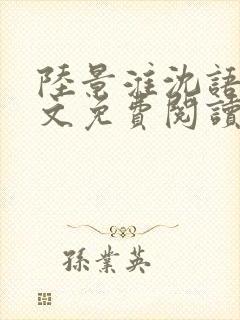 陸景淮沈語
文免費閱讀
孫業英